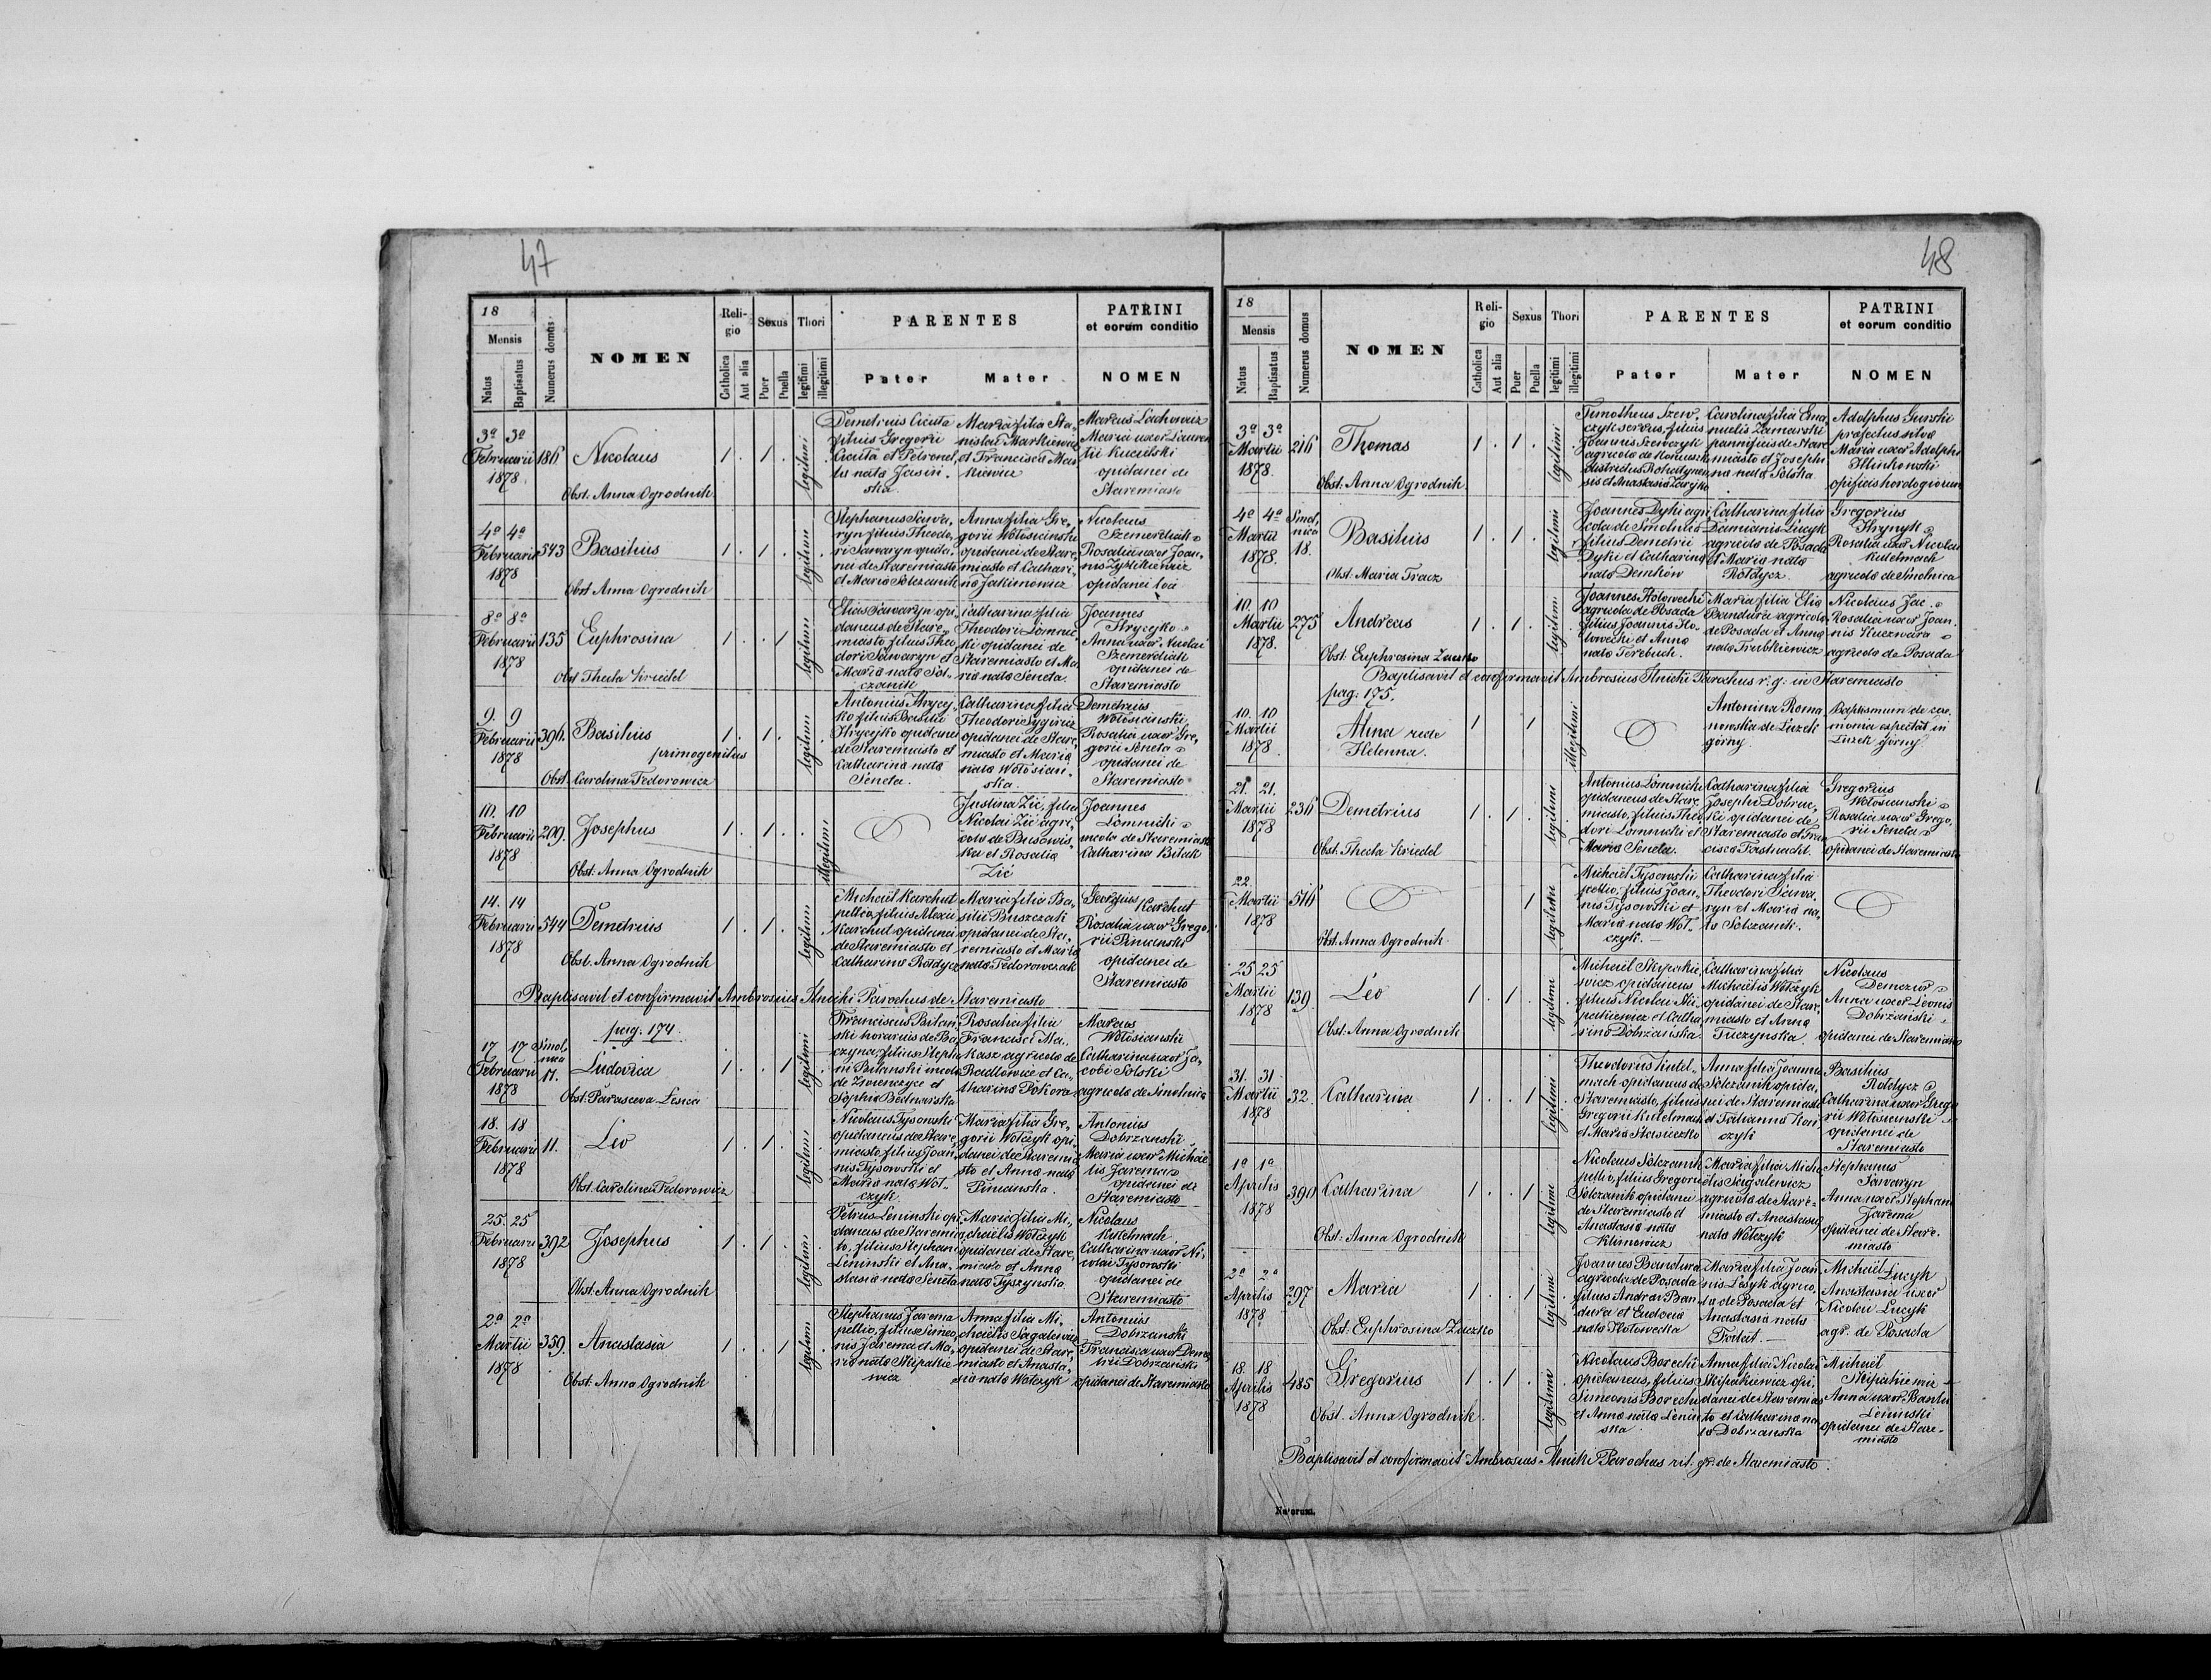 47
18
Mensis
Natus
Baptisatus
Numerus domus
NOMEN
Religio
Catholica
Aut alia
Sexus
Puer
Puella
Thori
legitimi
illegitimi
PARENTES
Pater
Mater
PATRINI
et eorum conditio
NOMEN
3a 3a
Februarii
1878
186
Nicolaus
Obst. Anna Ogrodnik
1 . 1 .
legitimi
Demetrius Cicuta
filius Gregorii
Cicuta et Petronel,
la nata Jasiń.
ska.
Maria filia Sta,
nislai Markiewicz
et Francisca Mar
kiewicz
Marcus Lachowicz
Maria uxor Lauren
tii Kucielski
opidanei de
Staremiasto
4a 4a
Februarii
1878
543
Basilius
Obst Anna Ogrodnik
1 . 1 .
legitimi
Stephanus Sawa,
ryn filius Theodo,
ri Sawaryn opida,
nei de Staremiasto
et Maria Solczanik
Anna filia Gre,
gorii Wołosianski
opidanei de Stare,
miasto et Cathari,
na Jakimowicz
Nicolaus
Szemerdiak
Rosalia uxor Joan,
nis Zyblikiewicz
opidanei loci
8a 8a
Februarii
1878
135
Euphrosina
Obst Thecla Kriedel
1 . . 1
legitimi
Elias Sawaryn opi
daneus de Stare,
miasto, filius Theo
dori Sawaryn et
Maria nata Sol,
czanik
Catharina filia
Theodori Łomnic
ki opidanei de
Staremiasto et Ma
ria nata Seneta.
Joannes
Hrycejko
Anna uxor Nicolai
Szemerdiak
opidanei de
Staremiasto
9. 9
Februarii
1878
396.
Basilius
primogenitus
Obst. Carolina Fedorowicz
1 . 1 .
legitimi
Antonius Hrycej,
ko filius Basilii
Hrycejko opidanei
de Staremiasto et
Catharina nata
Seneta.
Catharina filia
Theodori Sygiricz
opidanei de Stare,
miasto et Maria
nata Wołosian,
ska.
Demetrius
Wołosianski,
Rosalia uxor Gre,
gorii Seneta
opidanei de
Staremiasto
10. 10
Februarii
1878
209.
Josephus
Obst. Anna Ogrodnik
1 . 1 .
illegitimi
Justina Zić, filia
Nicolai Zić agri,
cola de Busowis,
ka et Rosalia
Zić
Joannes
Łomnicki
incola de Staremiasto
Catharina Bilak
14. 14
Februarii
1878
544
Demetrius
Obst. Anna Ogrodnik
1 . 1 .
legitimi
Michaël Karchut
pellio, filius Alexii
Karchut opidanei
de Staremiasto et
Catharina Rołdycz
Maria filia Ba,
silii Buszczak
opidanei de Sta,
remiasto et Maria
nata Fedorowczak
Georgius Karchut
Rosalia uxor Grego,
rii Piniański
opidanei de
Staremiasto
Baptisavit et confirmavit Ambrosius Ilnicki Parochus de Staremiasto
pag. 174.
17 17
Februarii
1878
Smolnica
17.
Ludovica
Obst. Parasceva Lesica
1 . . 1
legitimi
Franciscus Bilan
ski
filius Stepha
ni Bilanski incola
et
Sophia Bednarska
Rosalia filia
Francisci Ma,
kasz agricola de
Radlowice et Ca,
tharina Pokora
Marcus
Wołosianski
Catharina uxor Ja,
cobi Solski
agricola de Smolnica
18. 18
Februarii
1878
11.
Leo
Obst. Carolina Fedorowicz
1 . 1 .
legitimi
Nicolaus Tysowski
opidaneus de Stare,
miasto, filius Joan,
nis Tysowski et
Maria nata Woł,
czyk.
Maria filia Gre,
gorii Wołczyk opi,
danei de Staremia
sto et Anna nata
Pinianska.
Antonius
Dobrzanski
Maria uxor Michaë
lis Jarema
opidanei de
Staremiasto
25. 25
Februarii
1878
392
Josephus
Obst. Anna Ogrodnik
1 . 1 .
legitimi
Petrus Leninski opi,
daneus de Staremia
sto, filius Stephani
Leninski et Ana,
stasia nata Seneta
Maria filia Mi,
chaëlis Wołczyk
opidanei de Stare,
miasto et Anna
nata Tyszynska
Nicolaus
Kutelmach
Catharina uxor Ni,
colai Tysowski
opidanei de
Staremiasto
2a 2a
Martii
1878
359.
Anastasia
Obst. Anna Ogrodnik
1 . . 1
legitimi
Stephanus Jarema
pellio, filius Simeo,
nis Jarema et Ma,
ria nata Skipakie
wicz
Anna filia Mi,
chaëlis Sagalewicz
opidanei de Stare,
miasto et Anasta,
sia nata Wołczyk
Antonius
Dobrzanski
Francisca uxor Deme,
trii Dobrzański
opidanei de Staremiasto
48
18
Mensis
Natus
Baptisatus
Numerus domus
NOMEN
Religio
Catholica
Aut alia
Sexus
Puer
Puella
Thori
legitimi
illegitimi
PARENTES
Pater
Mater
PATRINI
et eorum conditio
NOMEN
3a 3a
Martii
1878.
216
Thomas
Obst. Anna Ogrodnik
1 . 1 .
legitimi
Timotheus Szew,
czyk servus, filius
Joannis Szewczyk
agricola de
districtus Rohatynen
sis et Anastasia
Carolina filia Ema,
nuelis Zamorski
pannificis de Stare
miasto et Josephi
na nata Solska
Adolphus Gurski
praefectus silvae
Maria uxor Adolphi
Klinkowski
opificis horologiorum
4a 4a
Martii
1878.
Smolnica
18.
Basilius
Obst. Maria Tracz
1 . 1 .
legitimi
Joannes Dyki agri
cola de Smolnica
filius Demetrii
Dyki et Catharina
nata Demków
Catharina filia
Damianis Łucyk
agricola de Posada
et Maria nata
Rołdycz.
Gregorius
Hrynyk
Rosalia uxor Nicolai
Kutelmach
agricola de Smolnica
10. 10
Martii
1878.
275
Andreas
Obst. Euphrosina Zuczko
1 . 1 .
legitimi
Joannes Hołowecki
agricola de Posada
filius Joannis Ho,
łowecki et Anna
nata Terebuch.
Maria filia Elia
Bandura agricola
de Posada et Anna
nata Trubkiewicz
Nicolaus Jac
Rosalia uxor Joan,
nis Kuczwara
agricola de Posada
Baptisavit et confirmavit Ambrosius Ilnicki Parochus r. g. in Staremiasto
pag. 175.
10. 10
Martii
1878
Alina recte
Helenna.
1 1
illegitimi
Antonina Roma
nowska de Łużek
górny.
Baptismum de cae,
monia expectat in
Łużek górny
21. 21.
Martii
1878
236
Demetrius
Obst. Thecla Kriedel
1 . 1 .
legitimi
Antonius Łomnicki
opidaneus de Stare,
miasto, filius Theo
dori Łomnicki et
Maria Seneta.
Catharina filia
Josephi Dobruc,
ki opidanei de
Staremiasto et Fran
cisca Fastnacht.
Gregorius
Wołosianski
Rosalia uxor Grego,
rii Seneta
opidanei de Staremiasto
22.
Martii
1878
516
Obst. Anna Ogrodnik
1
legitimi
Michaël Tysowski
pellio, filius Joan,
nis Tysowski et
Maria nata Woł,
czyk.
Catharina filia
Theodori Sawa,
ryn et Maria na,
ta Solczanik.
25 25
Martii
1878
139
Leo
Obst. Anna Ogrodnik
1 . 1 .
legitimi
Michaël Skipakie
wicz opidaneus
filius Nicolai Ski,
pakiewicz et Catha,
rina Dobrzańska
Catharina filia
Michaëlis Wołczyk
opidanei de Stare,
miasto et Anna
Tuczynska
Nicolaus
Demczur
Anna uxor Leonis
Dobrzański
opidanei de Staremiasto
31. 31
Martii
1878
32.
Catharina
1 . . 1
legitimi
Theodorus Kutel,
mach opidaneus de
Staremiasto, filius
Gregorii Kutelmach
et Maria Stasieczko
Anna filia Joannis
Solczanik opida,
nei de Staremiasto
et Tatianna Kon
czyk
Basilius
Rołdycz
Catharina uxor Grego
rii Wołosianski
opidanei de
Staremiasto
1a 1a
Aprilis
1878
390
Catharina
Obst. Anna Ogrodnik
1 . . 1
legitimi
Nicolaus Solczanik
pellio, filius Gregorii
Solczanik opidanei
de Staremiasto et
Anastasia nata
Klimowicz
Maria filia Micha
ëlis Sagalewicz
agricola de Stare,
miasto et Anastasia
nata Wołczyk
Stephanus
Sawaryn
Anna uxor Stephani
Jarema
opidanei de Stare,
miasto
2a 2a
Aprilis
1878
297
Maria
Obst. Euphrosina Zuczko
1 . . 1
legitimi
Joannes Bandura
agricola de Posada
filius Andreae Ban
dura et Eudocia
nata Hołowecka
Maria filia Joan
nis Lesyk agrico,
la de Posada et
Anastasia nata
Michaël Łucyk
Anastasia uxor
Nicolai Łucyk
agr. de Posada
18. 18
Aprilis
1878
485
Gregorius
Obst. Anna Ogrodnik.
1 . 1 .
legitimi
Nicolaus Borecki
opidaneus, filius
Simeonis Borecki
et Anna nata Lenin
ska
Anna filia Nicolai
Skipakiewicz opi,
danei de Staremia
sto et Catharina na
ta Dobrzanska
Michaël
Skipakiewicz
Anna uxor
Leninski
opidanei de Stare,
miasto
Baptisavit et confirmavit Ambrosius Ilnicki Parochus rit. gr. de Staremiasto.
Natorum.